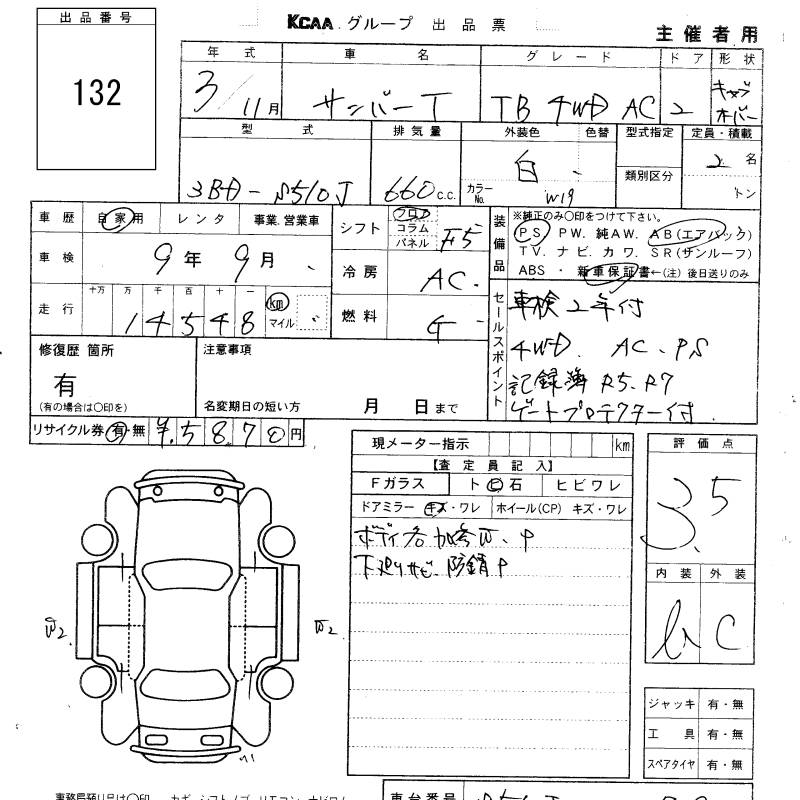 出品番号
132
KCAA グループ 出品票
主催者用
年式 車名 グレード ドア 形状
3/11月 サンバーT TB 4WD AC 2 キャブオーバー
型式 排気量 外装色 色替 型式指定 定員・積載
3BD-S510J 660c.c. 白 カラーNo. W19 類別区分 2名 トン
車歴 自家用 レンタ 事業.営業車
車検 9年9月
走行 十万 万 千 百 十 一 14548 km マイル
シフト フロア コラム パネル F5
冷房 AC.
燃料 G
装備品
※純正のみ○印をつけて下さい。
PS PW. 純AW. AB(エアバック)
TV. ナビ. カワ. SR(サンルーフ)
ABS ・ 新車保証書←(注) 後日送りのみ
セールスポイント
車検2年付
4WD. AC. PS
記録簿 R5. R7
ゲートプロテクター付.
修復歴 箇所
有
(有の場合は○印を)
注意事項
名変期日の短い方 月 日まで
リサイクル券 有・無 ¥.5870円
現メーター指示 km
【査定員記入】
Fガラス ト ヒ 石 ヒビワレ
ドアミラー キズ・ワレ ホイール(CP) キズ・ワレ
ボディ各加キズW、P
下廻りサビ 防錆P
評価点
3.5
内装 外装
C
W2
W2
ジャッキ 有・無
工具 有・無
スペアタイヤ 有・無
車台番号